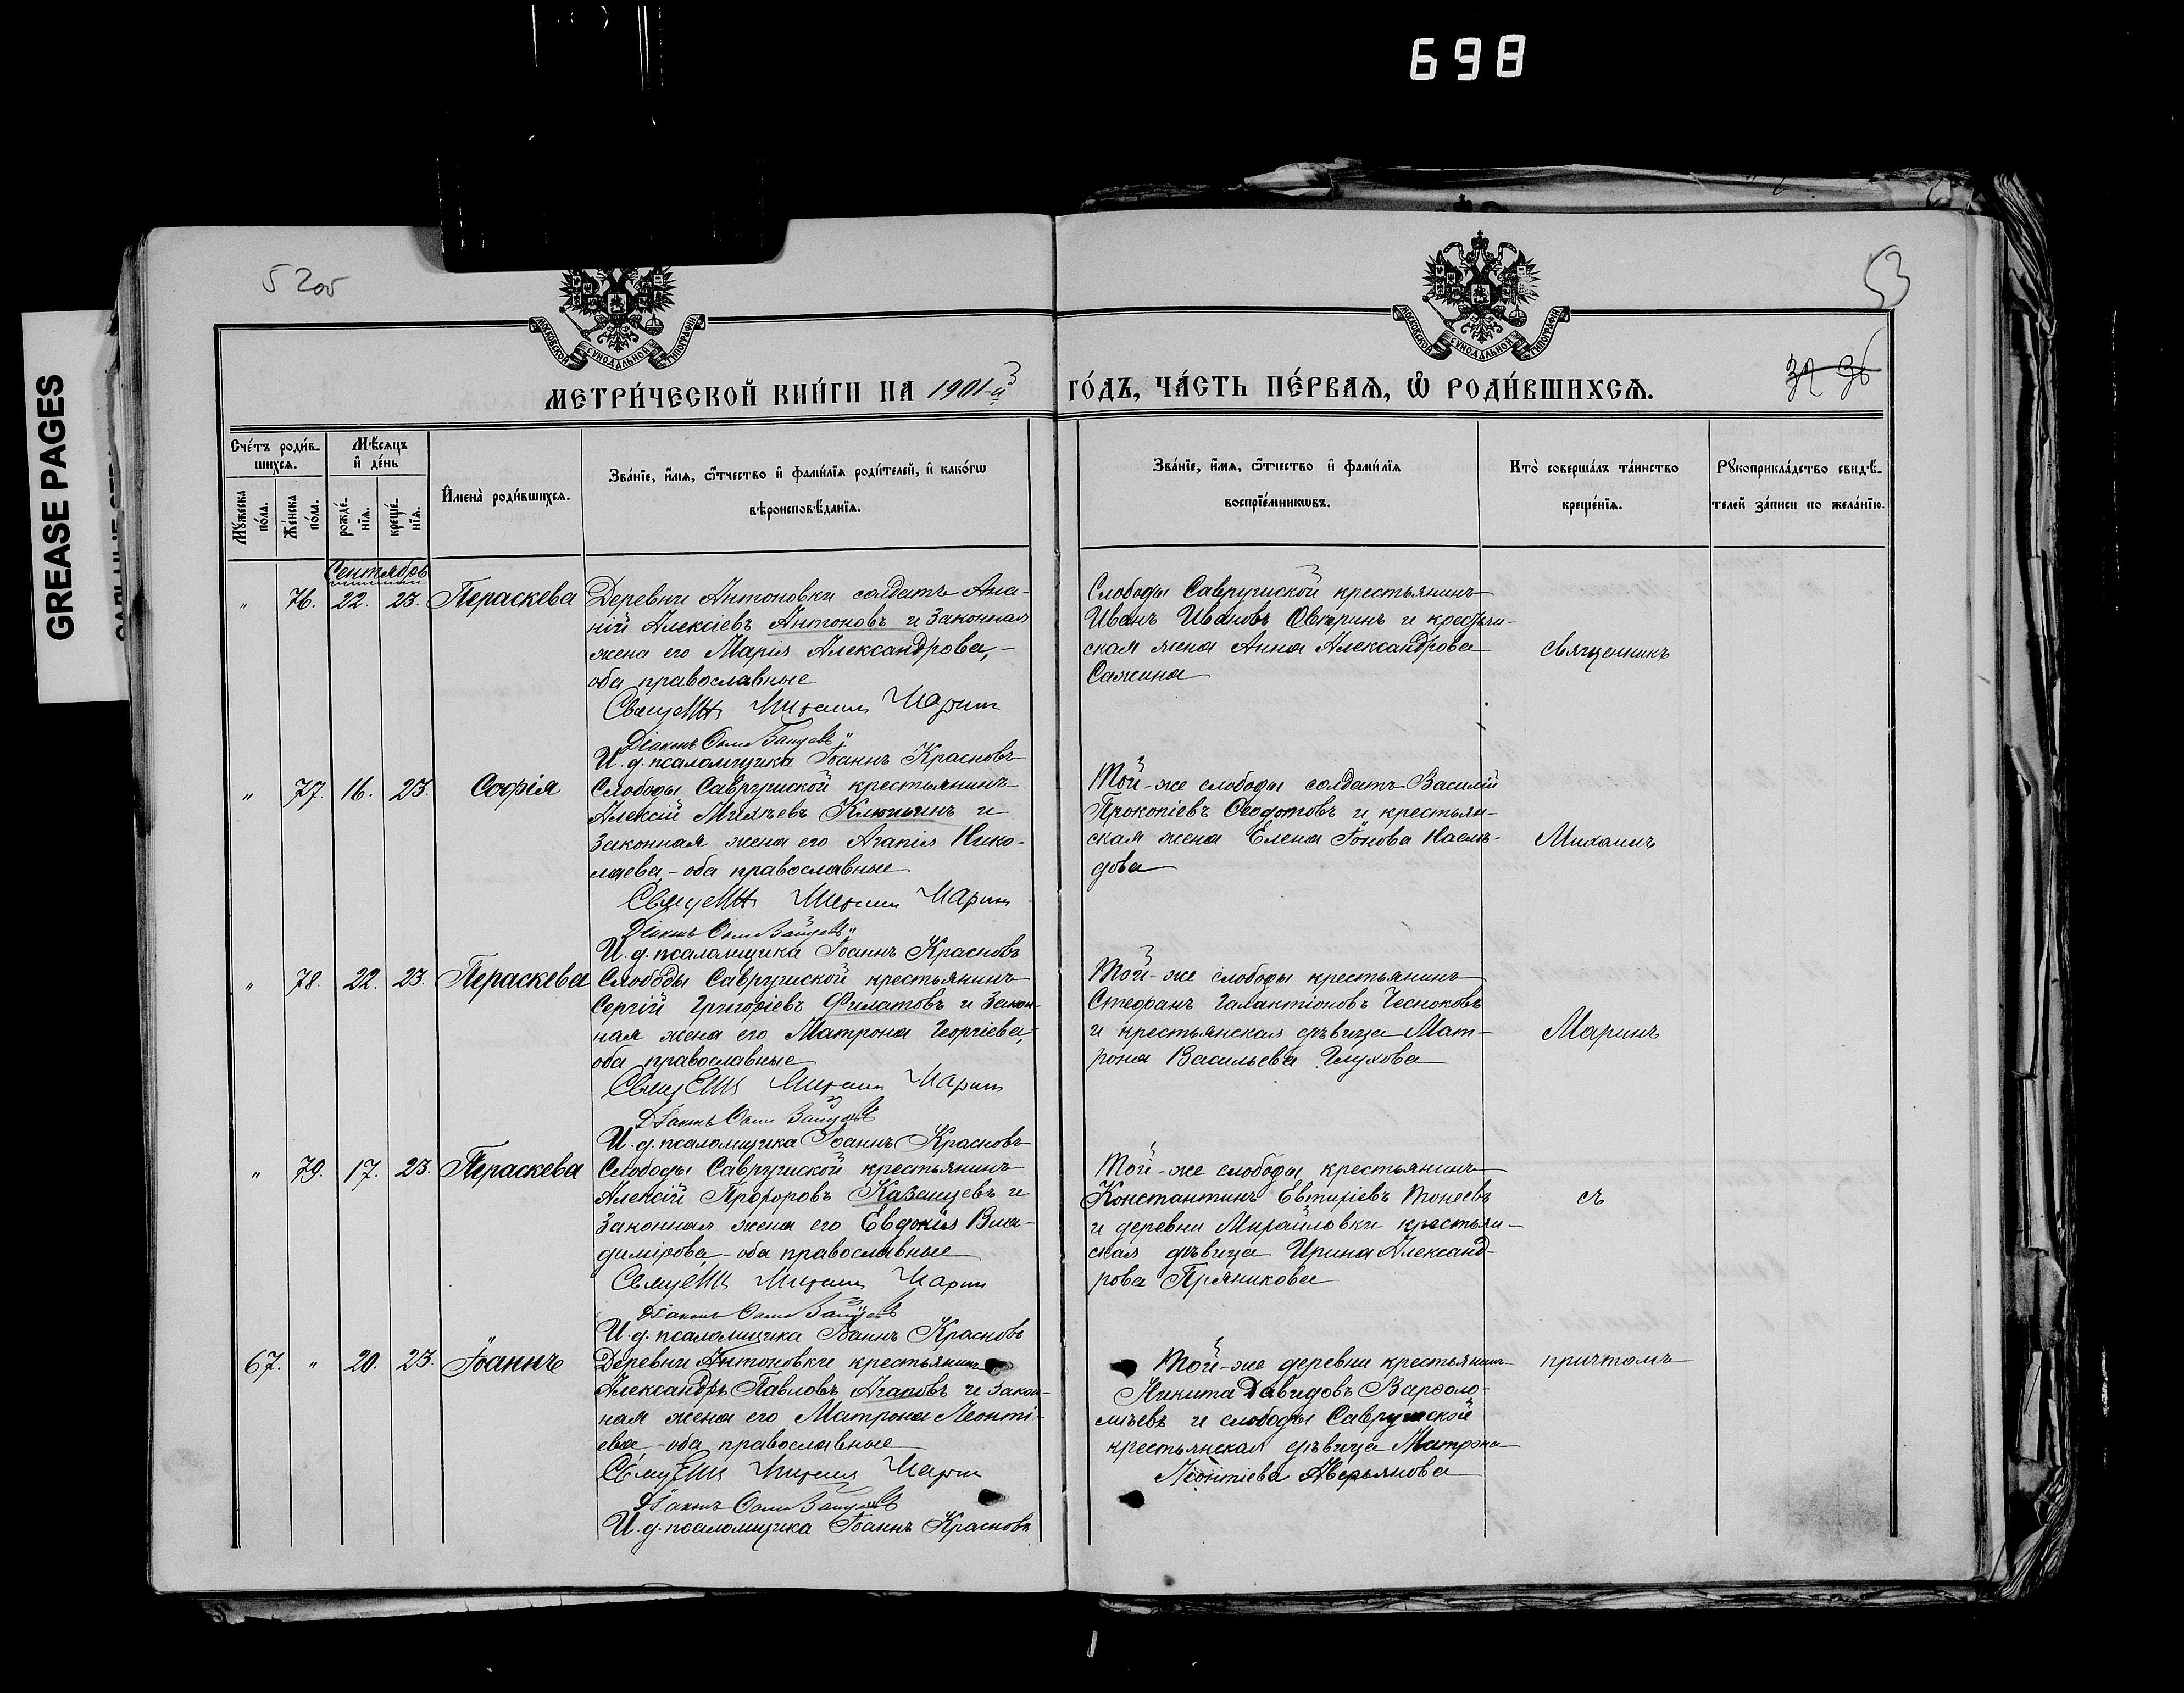 698
GREASE PAGES
52об
53
МОСКОВСКОЙ СУНОДАЛЬНОЙ ТИПОГРАФІИ
МОСКОВСКОЙ СУНОДАЛЬНОЙ ТИПОГРАФІИ
МЕТРИ́ЧЕСКОЙ КНИ́ГИ НА 1901-й ГО́ДЪ, ЧА́СТЬ ПЕ́РВАѦ, Ѽ РОДИ́ВШИХСѦ.
32 36
Сче́тъ роди́в-
шихсѧ.
Мꙋ́жеска по́ла.
Же́нска по́ла.
Мѣ́сѧцъ
и҆ де́нь
рожде́-
нїѧ.
креще́-
нїѧ.
И҆мена̀ роди́вшихсѧ.
Зва́нїе, и҆́мѧ, ѻ҆́тчество и҆ фами́лїѧ роди́телей, и҆ како́гѡ
вѣроисповѣ́данїѧ.
Зва́нїе, и҆́мѧ, ѻ҆́тчество и҆ фами́лїѧ
воспрїе́мникѡвъ.
Кто̀ соверша́лъ та́инство
креще́нїѧ.
Рꙋкоприкла́дство свидѣ́-
телей за́писи по жела́нїю.
Сентябрь
" 76. 22. 23. Параскева
Деревни Антоновки солдатъ Ана-
ній Алексіевъ Антоновъ и законная
жена его Марія Александрова,-
оба православные
Священ. Михаилъ Маринъ
Діаконъ
И. д. псаломщика Іоаннъ Красновъ
Слободы Саврушской крестьянинъ
Иванъ Ивановъ Овчринъ и крестьян-
ская жена Анна Александрова
Сажина
священникъ
" 77. 16. 23. Софія
Слободы Саврушской крестьянинъ
Алексій Михѣевъ Клюкинъ и
законная жена его Агапія Нико-
лаева,-оба православные
Священ. Михаилъ Маринъ
Діаконъ
И. д. псаломщика Іоаннъ Красновъ
Той-же слободы солдатъ Василій
Прокопіевъ Ѳеодотовъ и крестьян-
ская жена Елена Іонова Наслѣ-
дова
Михаилъ
" 78. 22. 23. Параскева
Слободы Саврушской крестьянинъ
Сергій Григоріевъ Филатовъ и закон-
ная жена его Матрона Георгіева,
оба православные
Священ. Михаилъ Маринъ
Діаконъ
И. д. псаломщика Іоаннъ Красновъ
Той-же слободы крестьянинъ
Стефанъ Галактіоновъ Чесноковъ
и крестьянская дѣвица Мат-
рона Васильева Глухова
Маринъ
" 79. 17. 23. Параскева
Слободы Саврушской крестьянинъ
Алексій Прохоровъ Казанцевъ и
законная жена его Евдокія Вла-
димірова,-оба православные
Священ. Михаилъ Маринъ
Діаконъ
И. д. псаломщика Іоаннъ Красновъ
Той-же слободы крестьянинъ
Константинъ Евтихіевъ Тонеевъ
и деревни Михайловки крестьян-
ская дѣвица Ирина Александ-
рова Пряникова
съ
67. " 20. 23. Іоаннъ
Деревни Антоновки крестьянинъ
Александръ Павловъ Агаповъ и закон-
ная жена его Матрона Леонті-
ева,-оба православные
Священ. Михаилъ Маринъ
Діаконъ
И. д. псаломщика Іоаннъ Красновъ
Той-же деревни крестьянинъ
Никита Давидовъ Варѳоло-
мѣевъ и слободы Саврушской
крестьянская дѣвица Матрона
Леонтіева Аверьянова
причтомъ